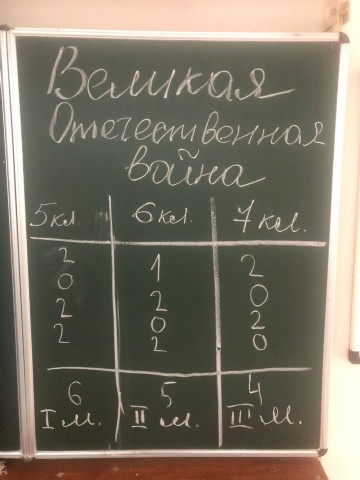 Великая
Отечественная
война
5кл. 6кл. 7кл.
2 1 2
0 2 0
2 0 2
2 2 0
6 5 4
I м. II м. III м.